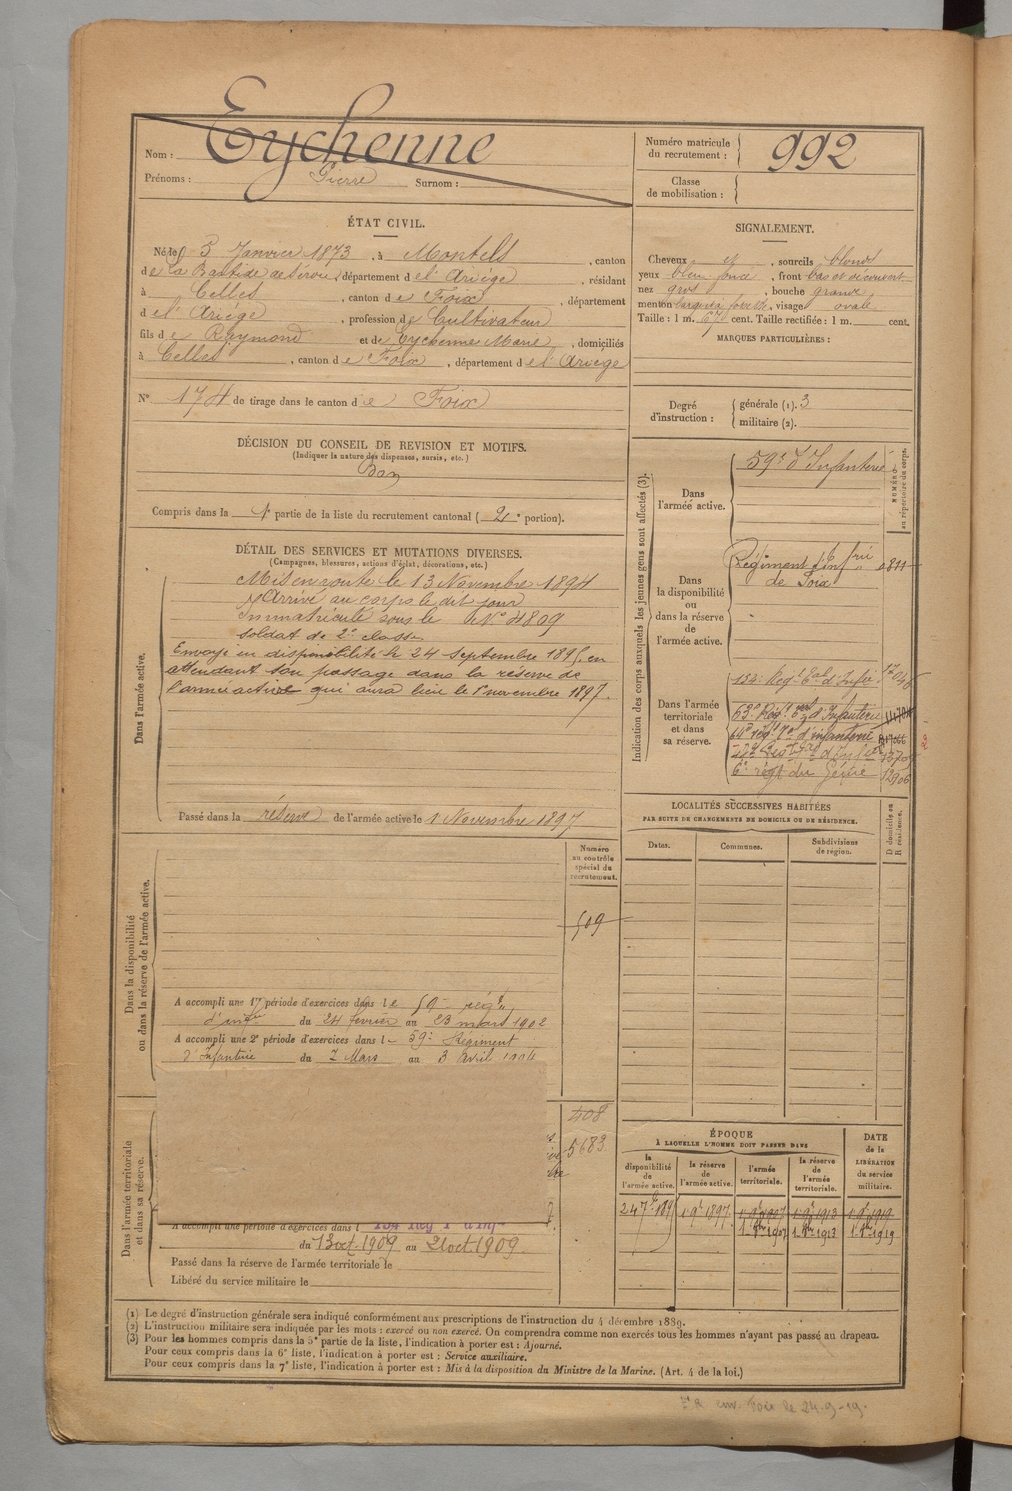 Nom : Eychenne
Prénoms : Pierre Surnom :
Numéro matricule
du recrutement : 992
Classe
de mobilisation :
ÉTAT CIVIL.
Né le 5 Janvier 1873, à Montels, canton
de La Bastide de Sérou, département de l'Ariège, résidant
à Celles, canton de Foix, département
de l'Ariège, profession de Cultivateur
fils de Raymond et de Eychenne Marie, domiciliés
à Celles, canton de Foix, département de l'Ariège
N° 174 de tirage dans le canton de Foix
SIGNALEMENT.
Cheveux et, sourcils blonds
yeux bleu foncé, front bas et découvert
nez gros, bouche grande
menton, visage ovale
Taille : 1 m. 670 cent. Taille rectifiée : 1 m. cent.
MARQUES PARTICULIÈRES :
Degré
d'instruction :
générale (1). 3
militaire (2).
DÉCISION DU CONSEIL DE REVISION ET MOTIFS.
(Indiquer la nature des dispenses, sursis, etc.)
Bon
Compris dans la 1e partie de la liste du recrutement cantonal (2e portion).
DÉTAIL DES SERVICES ET MUTATIONS DIVERSES.
(Campagnes, blessures, actions d'éclat, décorations, etc.)
Dans l'armée active.
Mis en route le 13 Novembre 1894
Arrivé au corps le dit jour
Immatriculé sous le N° 4809
soldat de 2e classe.
Envoyé en disponibilité le 24 septembre 1895, en
attendant son passage dans la réserve de
l'armée active qui aura lieu le 1er novembre 1897.
Passé dans la réserve de l'armée active le 1 Novembre 1897
Indication des corps auxquels les jeunes gens sont affectés (3).
NUMÉRO
au répertoire du corps.
Dans
l'armée active.
59e d'Infanterie
Dans
la disponibilité
ou
dans la réserve
de
l'armée active.
Régiment d'infrie
de Foix
0811
Dans l'armée
territoriale
et dans
sa réserve.
134e Régt Eal d'Infie
63e Régt d'Infanterie
64e régt d'infanterie
6e régt du Génie 12906
LOCALITÉS SUCCESSIVES HABITÉES
PAR SUITE DE CHANGEMENTS DE DOMICILE OU DE RÉSIDENCE.
Dates.
Communes.
Subdivisions
de région.
D domicile ou
R résidence.
Dans la disponibilité
ou dans la réserve de l'armée active.
Numéro
au contrôle
spécial du
recrutement.
509
A accompli une 1re période d'exercices dans le 59e régt
d'infie du 24 février au 23 mars 1902
A accompli une 2e période d'exercices dans le 59e Régiment
d'Infanterie du 7 Mars au 3 Avril 1904
Dans l'armée territoriale
et dans sa réserve.
408
5683
A accompli une période d'exercices dans l 134 Reg T d'Inf
du 13 oct 1909 au 21 oct. 1909
Passé dans la réserve de l'armée territoriale le
Libéré du service militaire le
ÉPOQUE
À LAQUELLE L'HOMME DOIT PASSER DANS
la
disponibilité
de
l'armée active.
la réserve
de
l'armée active.
l'armée
territoriale.
la réserve
de
l'armée
territoriale.
DATE
de la
LIBÉRATION
du service
militaire.
24 7bre 1895 1 9bre 1897 1 9bre 1907 1 9bre 1913 1 9bre 1919
1 8bre 1907 1 8bre 1913 1 8bre 1919
(1) Le degré d'instruction générale sera indiqué conformément aux prescriptions de l'instruction du 4 décembre 1889.
(2) L'instruction militaire sera indiquée par les mots : exercé ou non exercé. On comprendra comme non exercés tous les hommes n'ayant pas passé au drapeau.
(3) Pour les hommes compris dans la 5e partie de la liste, l'indication à porter est : Ajourné.
Pour ceux compris dans la 6e liste, l'indication à porter est : Service auxiliaire.
Pour ceux compris dans la 7e liste, l'indication à porter est : Mis à la disposition du Ministre de la Marine. (Art. 4 de la loi.)
Foix le 24-9-19.